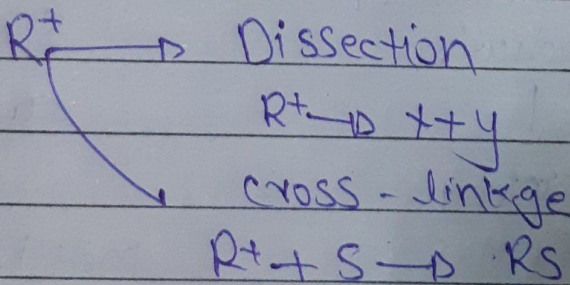 R+ → Dissection
R+ → x+y
cross-linkge
R+ + S → RS